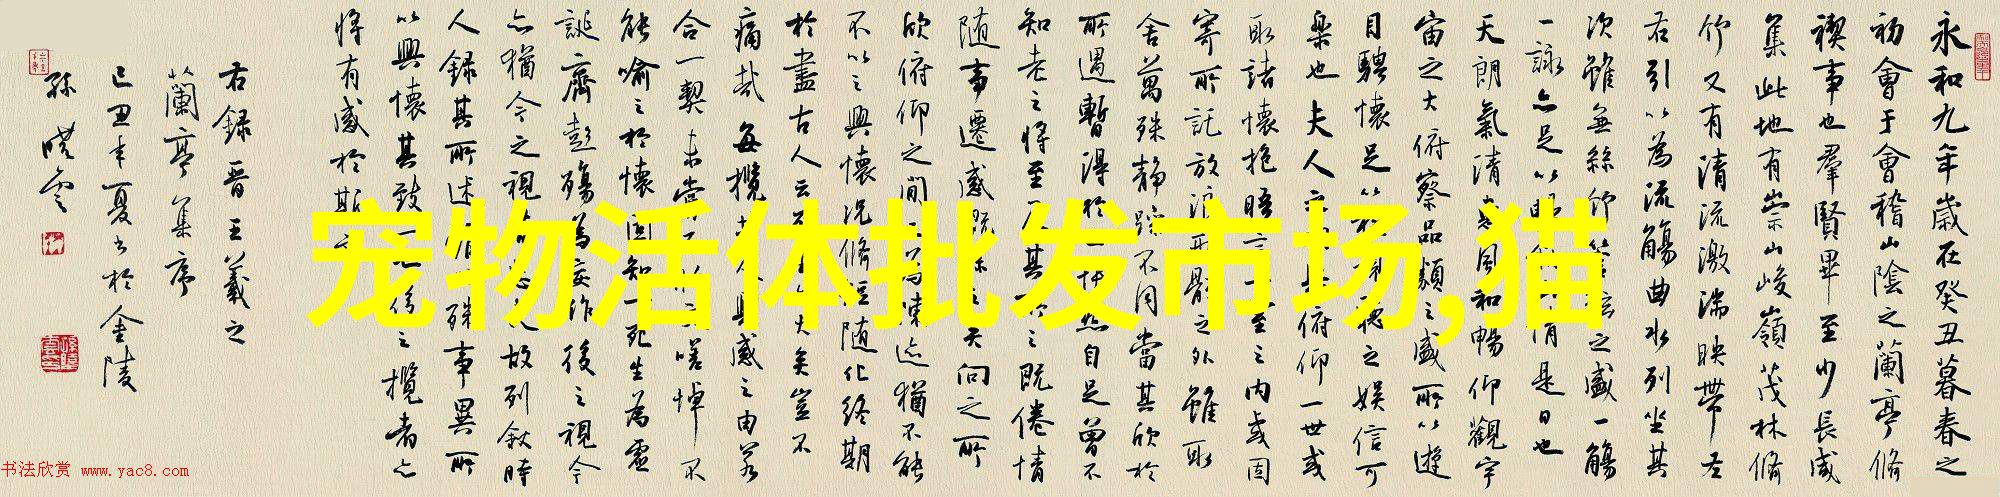 永和九年歲在癸丑暮春之
初會于會稽山陰之蘭亭脩
禊事也羣賢畢至少長咸
集此地有崇山峻嶺茂林脩
竹又有清流激湍映帶左
右引以為流觴曲水列坐其
次雖無絲竹管弦之盛一觴
一詠亦足以暢叙幽情是日也
天朗氣清惠風和暢仰觀宇
宙之大俯察品類之盛所以遊
目騁懷足以極視聽之娛信可
樂也夫人之相與俯仰一世或
取諸懷抱晤言一室之内或因
寄所託放浪形骸之外雖取
舍萬殊靜躁不同當其欣於
所遇暫得於己怏然自足曾不
知老之將至及其所之既倦情
隨事遷感慨係之矣向之所
欣俯仰之間以為陳迹猶不能
不以之興懷況脩短隨化終期
於盡古人云死生亦大矣豈不
痛哉每攬昔人興感之由若
合一契未嘗不臨文嗟悼不
能喻之於懷固知一死生為虛
誕齊彭殤為妄作後之視今
亦猶今之視昔悲夫故列叙時
人錄其所述雖世殊事異所
以興懷其致一也後之攬者亦
將有感於斯文
右録晋王羲之
蘭亭集序
己丑年夏書於金陵
孫曉雲
宠物活体批发市场,猫
书法欣赏 www.yac8.com